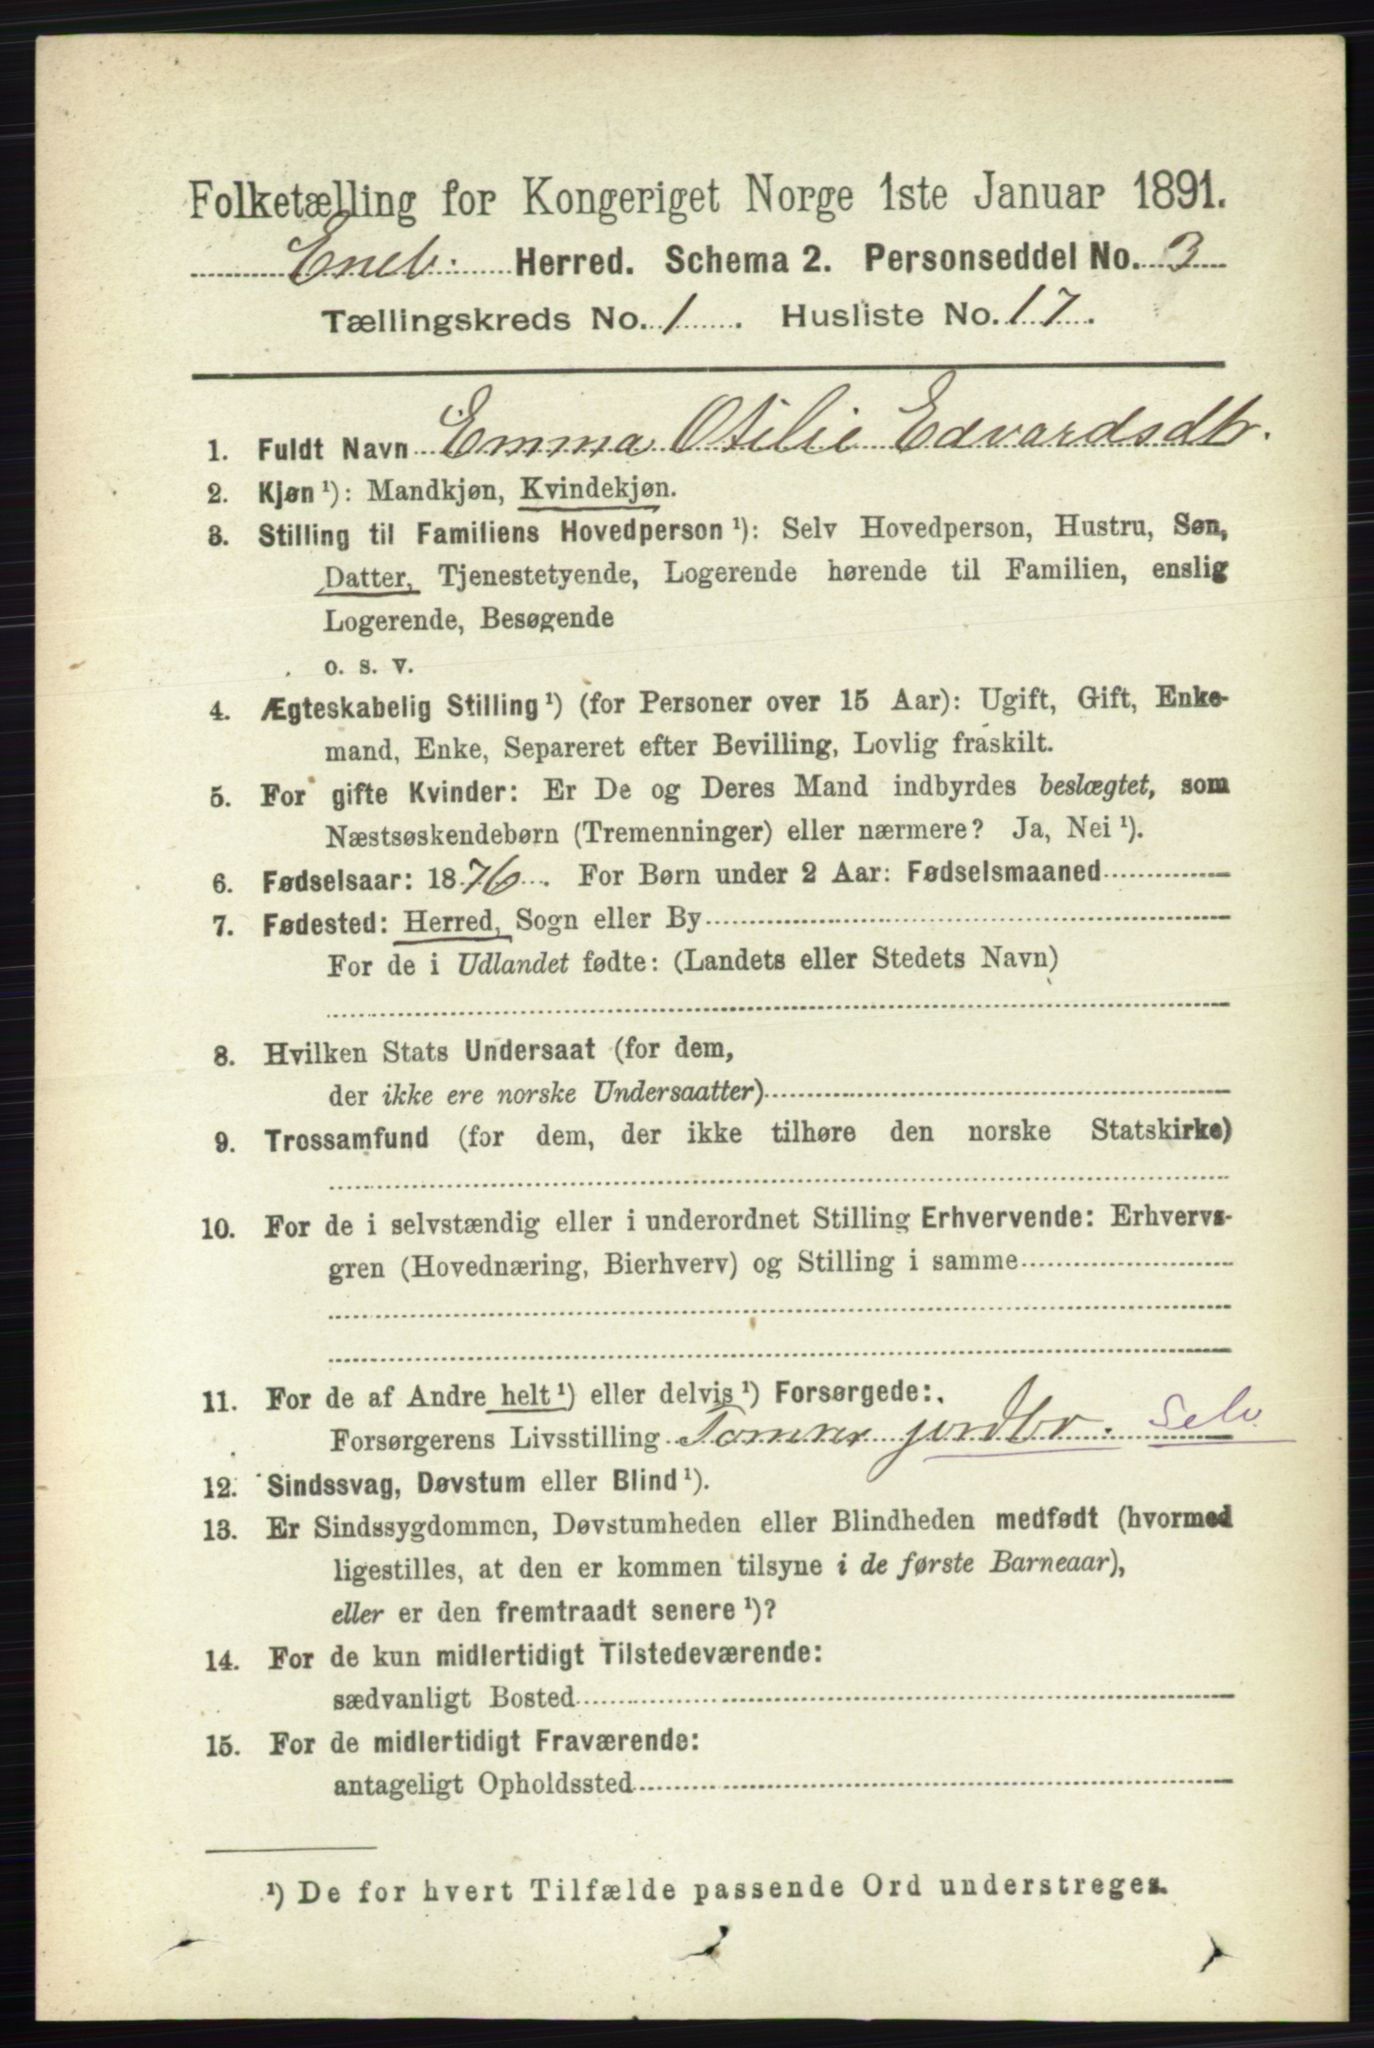 Folketælling for Kongeriget Norge 1ste Januar 1891.
Eneb. Herred. Schema 2. Personseddel No. 3
Tællingskreds No. 1. Husliste No. 17.
1. Fuldt Navn Emma Otilie Edvardsdtr.
2. Kjøn ¹): Mandkjøn, Kvindekjøn.
3. Stilling til Familiens Hovedperson ¹): Selv Hovedperson, Hustru, Søn,
Datter, Tjenestetyende, Logerende hørende til Familien, enslig
Logerende, Besøgende
o. s. v.
4. Ægteskabelig Stilling ¹) (for Personer over 15 Aar): Ugift, Gift, Enke-
mand, Enke, Separeret efter Bevilling, Lovlig fraskilt.
5. For gifte Kvinder: Er De og Deres Mand indbyrdes beslægtet, som
Næstsøskendebørn (Tremenninger) eller nærmere? Ja, Nei ¹).
6. Fødselsaar: 1876. For Børn under 2 Aar: Fødselsmaaned
7. Fødested: Herred, Sogn eller By
For de i Udlandet fødte: (Landets eller Stedets Navn)
8. Hvilken Stats Undersaat (for dem,
der ikke ere norske Undersaatter)
9. Trossamfund (for dem, der ikke tilhøre den norske Statskirke)
10. For de i selvstændig eller i underordnet Stilling Erhvervende: Erhvervs-
gren (Hovednæring, Bierhverv) og Stilling i samme
11. For de af Andre helt ¹) eller delvis ¹) Forsørgede:
Forsørgerens Livsstilling Tømrer jordbr. Selv
12. Sindssvag, Døvstum eller Blind ¹).
13. Er Sindssygdommen, Døvstumheden eller Blindheden medfødt (hvormed
ligestilles, at den er kommen tilsyne i de første Barneaar),
eller er den fremtraadt senere ¹)?
14. For de kun midlertidigt Tilstedeværende:
sædvanligt Bosted
15. For de midlertidigt Fraværende:
antageligt Opholdssted
¹) De for hvert Tilfælde passende Ord understreges.